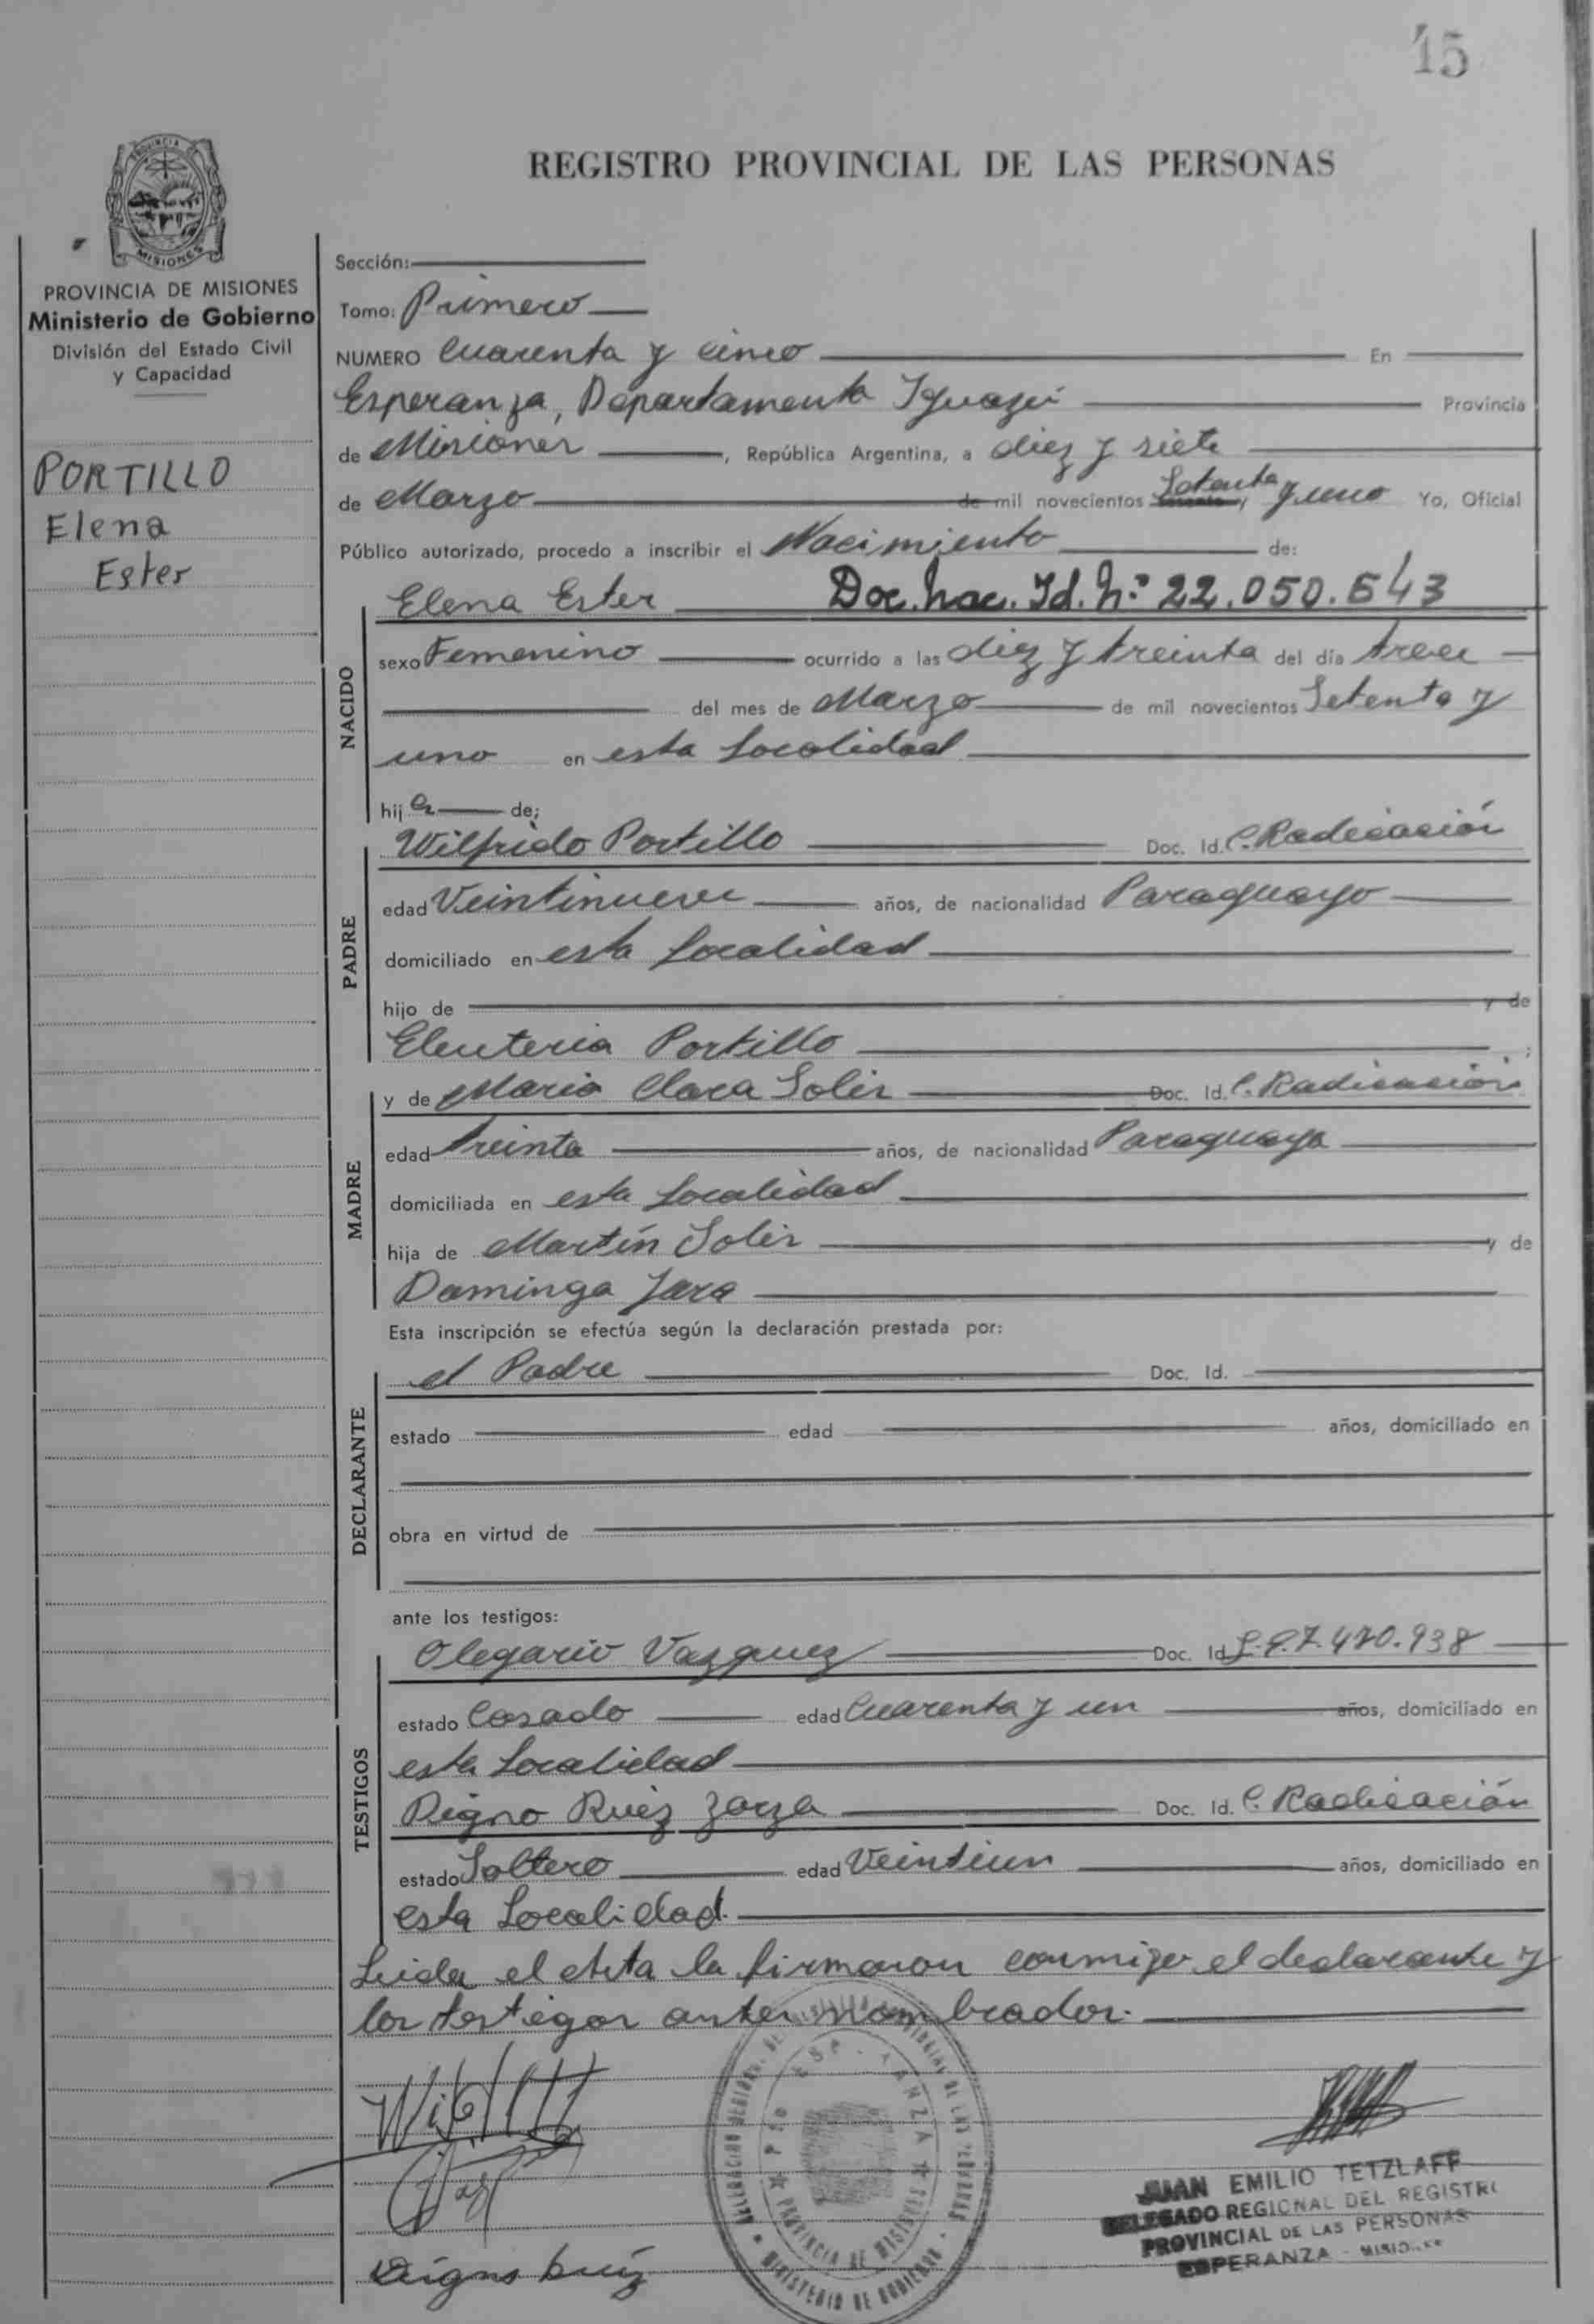 15
REGISTRO PROVINCIAL DE LAS PERSONAS
PROVINCIA
MISIONES
PROVINCIA DE MISIONES
Ministerio de Gobierno
División del Estado Civil
y Capacidad
PORTILLO
Elena
Ester
Sección:
Tomo: Primero
NUMERO Cuarenta y cinco En
Esperanza, Departamento Iguazú Provincia
de Misiones, República Argentina, a diez y siete
de Marzo de mil novecientos Setenta y uno Yo, Oficial
Público autorizado, procedo a inscribir el Nacimiento de:
Elena Ester Doc. nac. Id. N: 22.050.643
NACIDO
sexo Femenino ocurrido a las diez y treinta del día trece
del mes de Marzo de mil novecientos Setenta y
uno en esta Localidad
hija de;
PADRE
Wilfrido Portillo Doc. Id. C. Radicación
edad Veintinueve años, de nacionalidad Paraguayo
domiciliado en esta Localidad
hijo de y de
Eleuteria Portillo ;
MADRE
y de Maria Clara Solis Doc. Id. C. Radicación
edad treinta años, de nacionalidad Paraguaya
domiciliada en esta Localidad
hija de Martín Solis y de
Dominga Jara
Esta inscripción se efectúa según la declaración prestada por:
DECLARANTE
el Padre Doc. Id.
estado edad años, domiciliado en
obra en virtud de
ante los testigos:
TESTIGOS
Olegario Vazquez Doc. Id. 7.420.938
estado Casado edad Cuarenta y un años, domiciliado en
esta Localidad
Digno Ruiz Zarza Doc. Id. C. Radicación
estado Soltero edad Veintiun años, domiciliado en
esta Localidad.
Leida el Acta la firmaron conmigo el declarante y
los testigos antes nombrados.
Digno Ruiz
PROVINCIA DE MISIONES
MINISTERIO DE GOBIERNO
JUAN EMILIO TETZLAFF
DELEGADO REGIONAL DEL REGISTRO
PROVINCIAL DE LAS PERSONAS
ESPERANZA - MISIONES